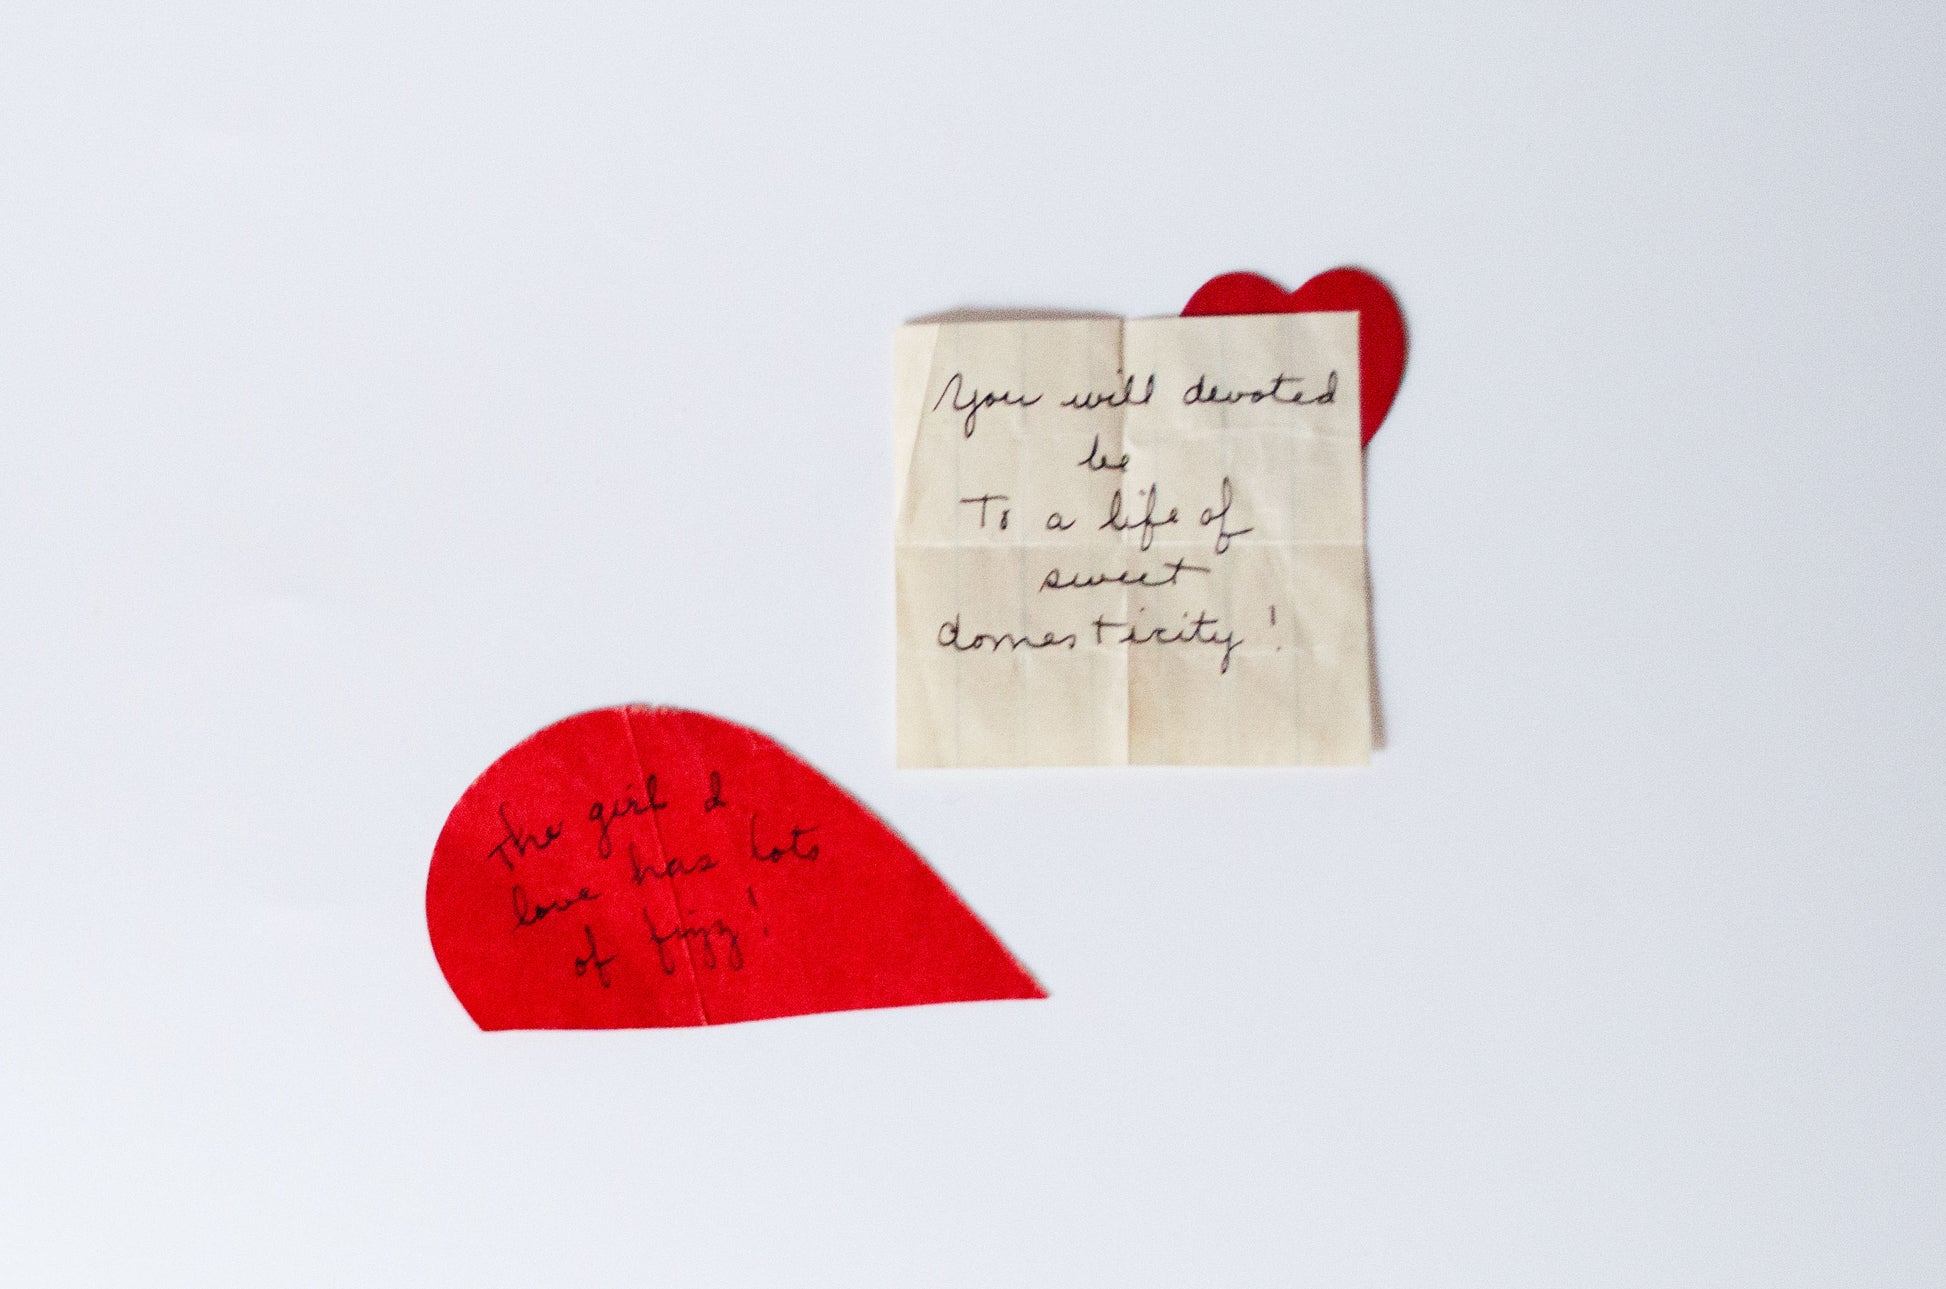 You will devoted
be
To a life of
sweet
domesticity!
The girl I
love has lots
of fizz!